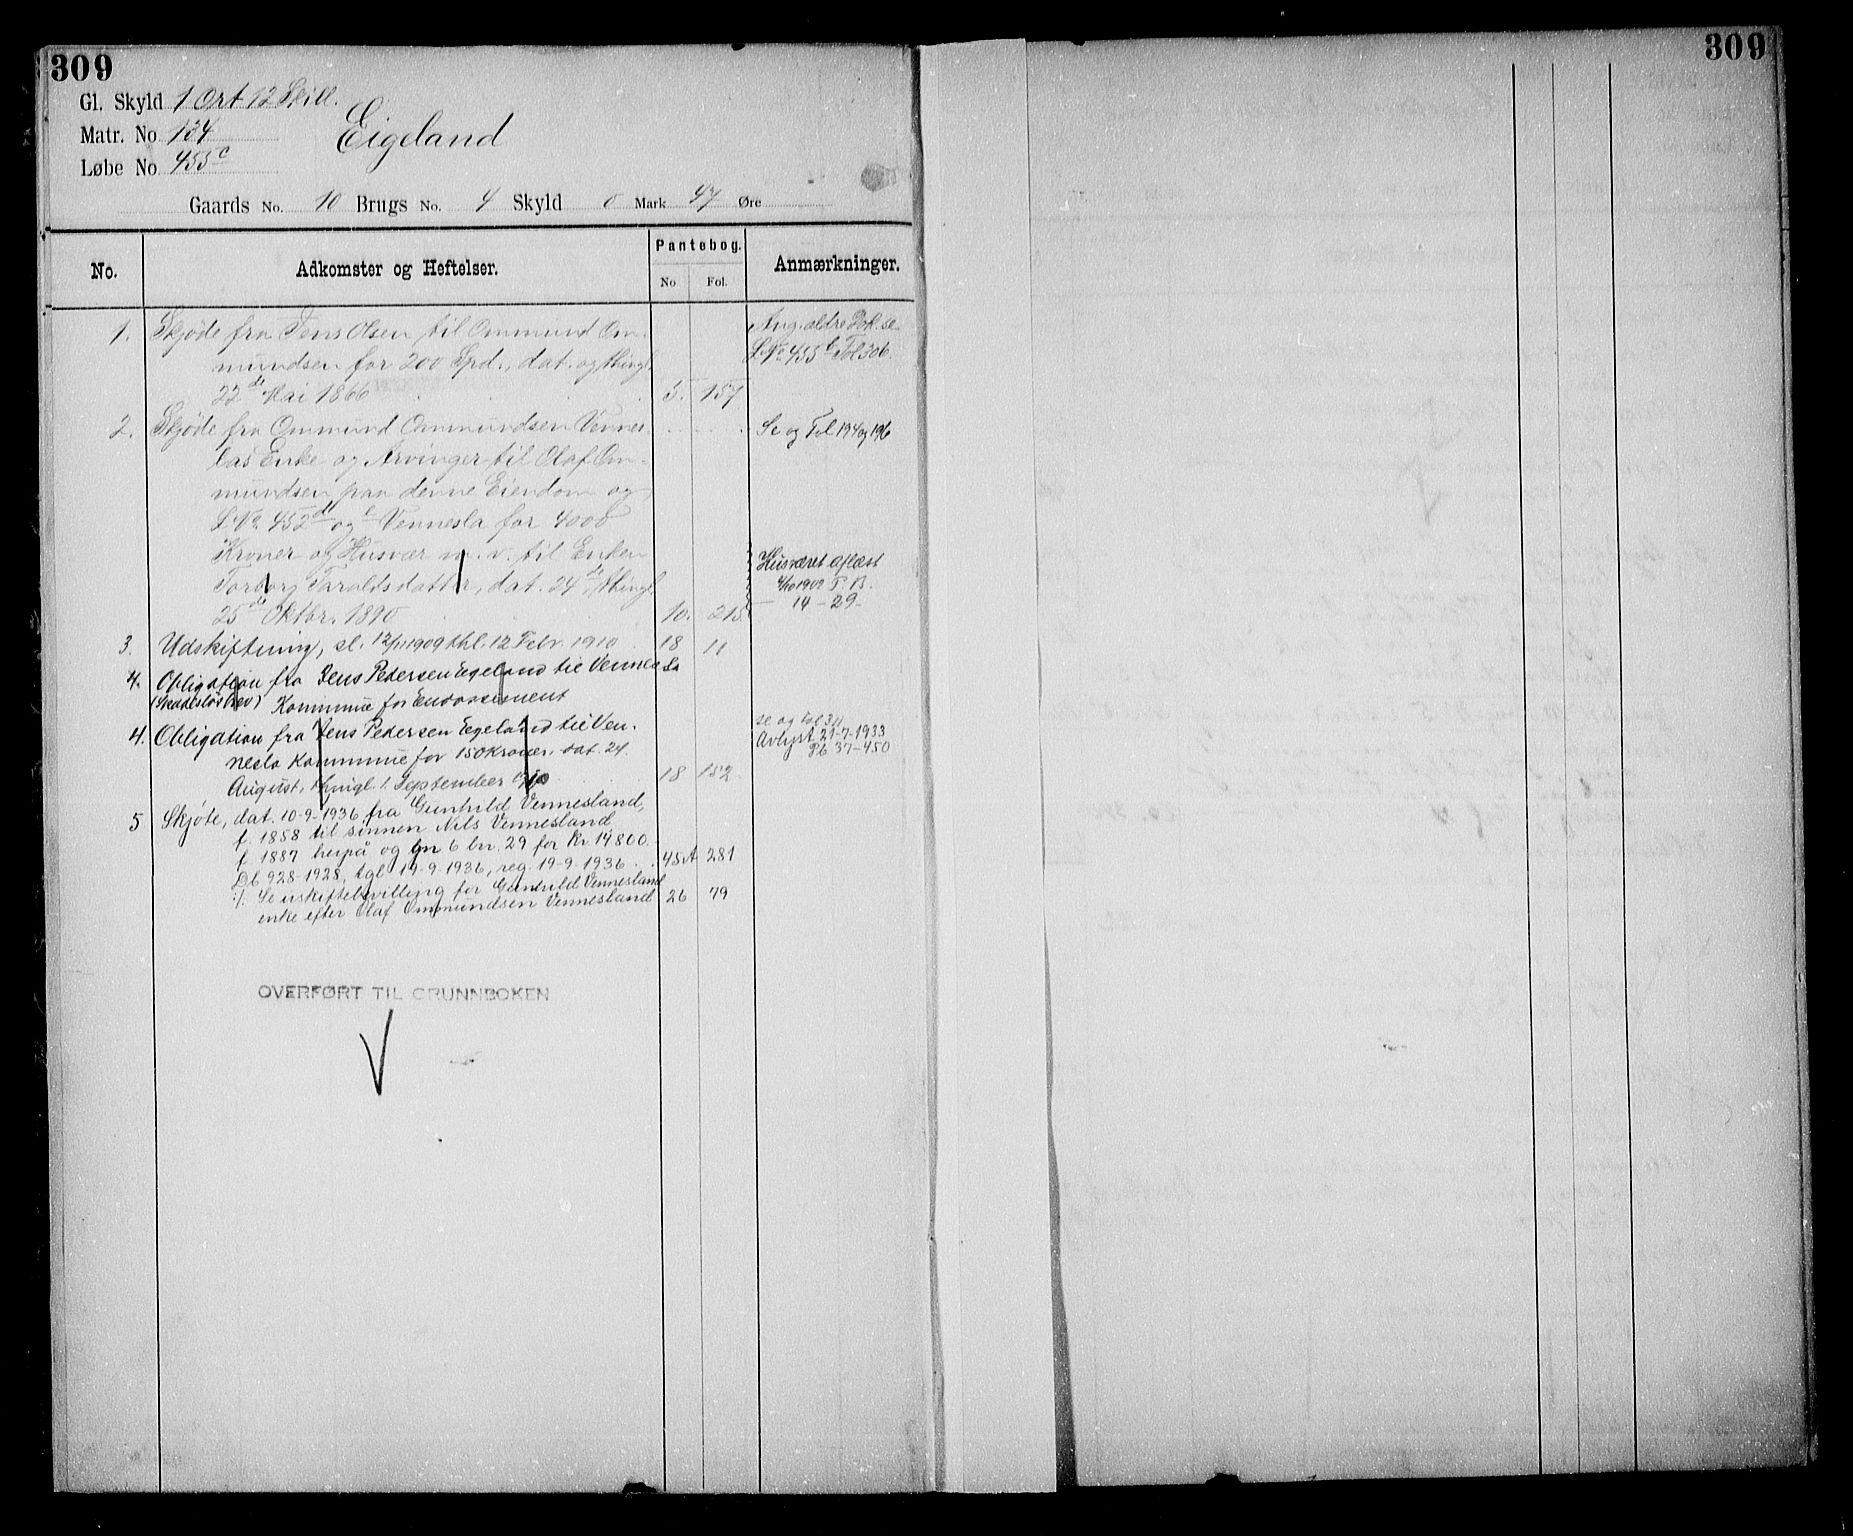 309
309
Gl. Skyld 1 Ort 12 Skill.
Matr. No 134
Løbe No 455c
Eigeland
Gaards No. 10 Brugs No. 4 Skyld 0 Mark 47 Øre
No. Adkomster og Heftelser. Pantebog. Anmærkninger.
No Fol.
1. Skjøde fra Jens Olsen til Ommund Om-
mundsen for 200 Spd., dat. og thingl.
22de Mai 1866 5. 157
Ang. ældre Dok. se
L.No 455b Fol 306.
2. Skjøde fra Ommund Ommundsen Vennes-
las Enke og Arvinger til Olaf Om-
mundsen paa denne Eiendom og
L.No 452d og e Vennesla for 4000
Kroner og Husvær m. v. til Enken
Torborg Taraldsdatter, dat. 24de, thingl.
25de Oktbr. 1890 10. 215.
Se og Fol 194 og 196
Husværet aflæst
4/10 1902 P.B.
14 - 29 -
3. Udskiftning, sl. 12/11 1909 thl. 12 Febr. 1910 18 11
4. Obligation fra Jens Pedersen Egeland til Vennesla
(Skadesløsbrev) Kommune for Endorsement
4. Obligation fra Jens Pedersen Egeland til Ven-
nesla Kommune for 150 Kroner, dat. 24
August, thingl. 1. September 1910 18 152.
se og Fol 311
Avlyst 21-7-1933
Pb 37-450
5 Skjøte, dat. 10-9-1936 fra Gunhild Vennesland,
f. 1858 til sønnen Nils Vennesland
f 1887 herpå og gn 6 bn. 29 for Kr. 14800.
Db 928-1928, tgl 19-9-1936, reg. 19-9-1936. 45A 281
:/. Se uskiftebevilling for Gunhild Vennesland
enke efter Olaf Ommundsen Vennesland 26 79
OVERFØRT TIL GRUNNBOKEN